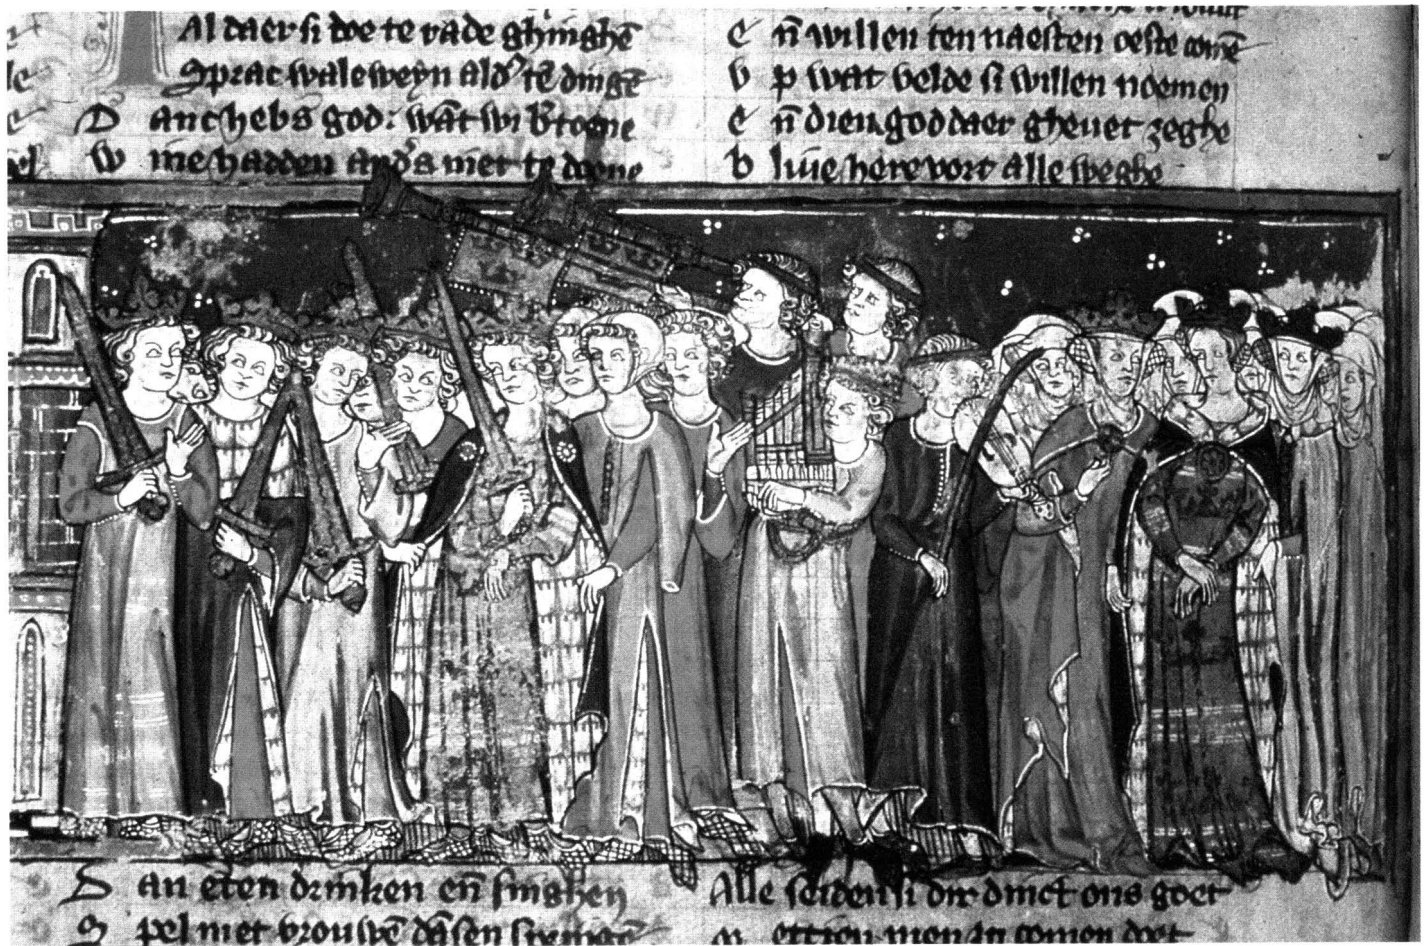 Al daer si doe te rade ghinghē
Sprac waleweyn ald' tē dingē
D anc hebs god: wāt wi
W ine hadden and's niet te doene
E n̄ willen ten naesten oeste comē
V p wat velde si willen noemen
E n̄ dien god daer gheuet zeghe
B liue here vort alle weghe
D an eten drinken en̄ singhen
S pel met vrouwē dāsen springē
Alle seiden si dit dinct ons goet
comen doet